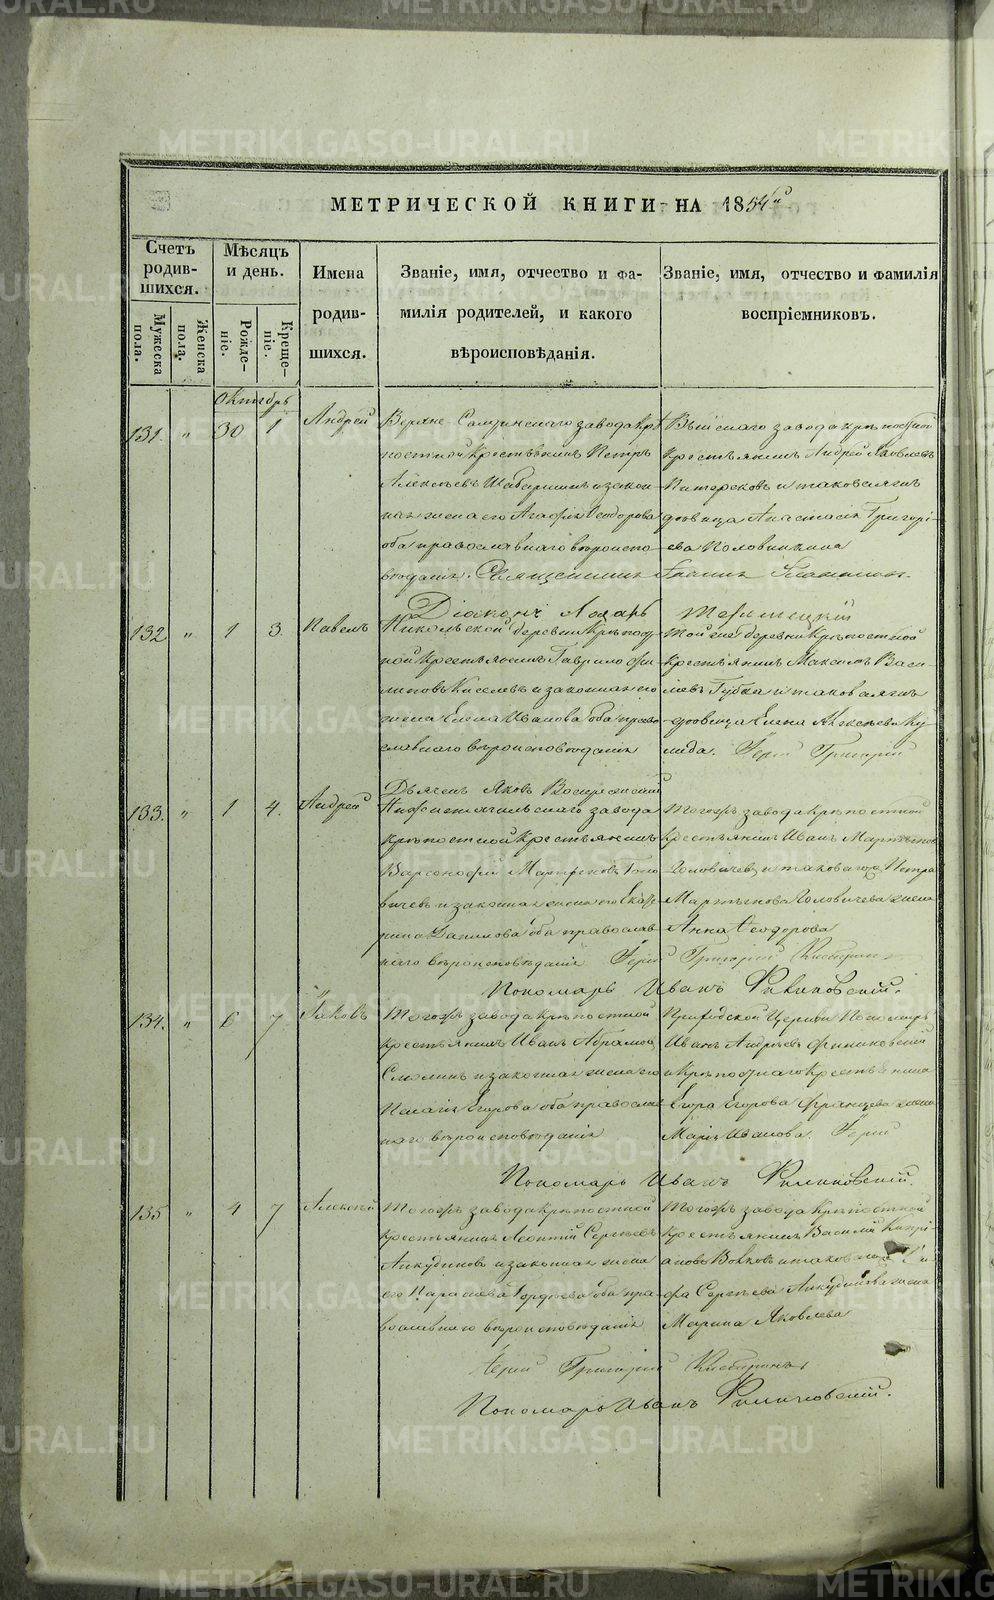 МЕТРИЧЕСКОЙ КНИГИ НА 1854й
Счетъ родив-шихся.
Мужеска пола.
Женска пола.
Мѣсяцъ и день.
Рожде-ніе.
Креще-ніе.
Имена
родив-
шихся.
Званіе, имя, отчество и фа-
милія родителей, и какого
вѣроисповѣданія.
Званіе, имя, отчество и фамилія
воспріемниковъ.
Октябрь
131. " 30 1 Андрей
Верхне-Салдинскаго завода крѣ
постной крестьянинъ Петръ
Алексѣевъ и закон
ная жена его Агафья Ѳеодорова
оба православнаго вѣроиспо-
вѣданія.
Выйскаго завода крѣпостной
крестьянинъ Андрей Яковлевъ
и таковая же
вдовица Анастасія Григорі-
ева Половинкина
Священникъ Іоаннъ
Діаконъ
132 " 1 3 Павелъ
Никольской деревни крѣпост-
ной крестьянинъ Гаврило Фи-
липовъ Киселевъ и законная его
жена Елена Иванова оба право
славнаго вѣроисповѣданія
Той же деревни крѣпостной
крестьянинъ Максимъ Васи-
левъ Губка и таковая же
вдовица Елена Алексѣева Ку-
лида. Іерей Григорій
Дьячекъ Яковъ Воскресенскій
133. " 1 4. Андрей
Нижнетагильскаго завода
крѣпостной крестьянинъ
Варсонофій Мартыновъ Голо
вичевъ и законная жена его Екате
рина Данилова оба православ
наго вѣроисповѣданія
Тогожъ завода крѣпостной
крестьянинъ Иванъ Мартыновъ
Головичевъ и таковагожъ Петра
Мартынова Головичева жена
Анна Ѳеодорова
Іерей Григорій
Пономарь Иванъ Финиковскій.
134. " 6 7 Іаковъ
Тогожъ завода крѣпостной
крестьянинъ Иванъ Абрамовъ
Смолинъ и законная жена его
Пелагія Егорова оба православ
наго вѣроисповѣданія
Приходской Церкви Пономарь
Иванъ Андреевъ Финиковскій
и крѣпостнаго крестьянина
Егора Егорова Францева жена
Марія Иванова. Іерей
Пономарь Иванъ Финиковскій.
135 " 4 7 Алексѣй
Тогожъ завода крѣпостной
крестьянинъ Леонтій Сергѣевъ
Анкудиновъ и законная жена
его Параскева Гордѣева оба пра-
вославнаго вѣроисповѣданія
Тогожъ завода крѣпостной
крестьянинъ Василій Кипрі-
ановъ Волковъ и таковаго
Сергѣева Анкудинова жена
Марина Яковлева
Іерей Григорій
Пономарь Иванъ Финиковскій.
METRIKI.GASO-URAL.RU